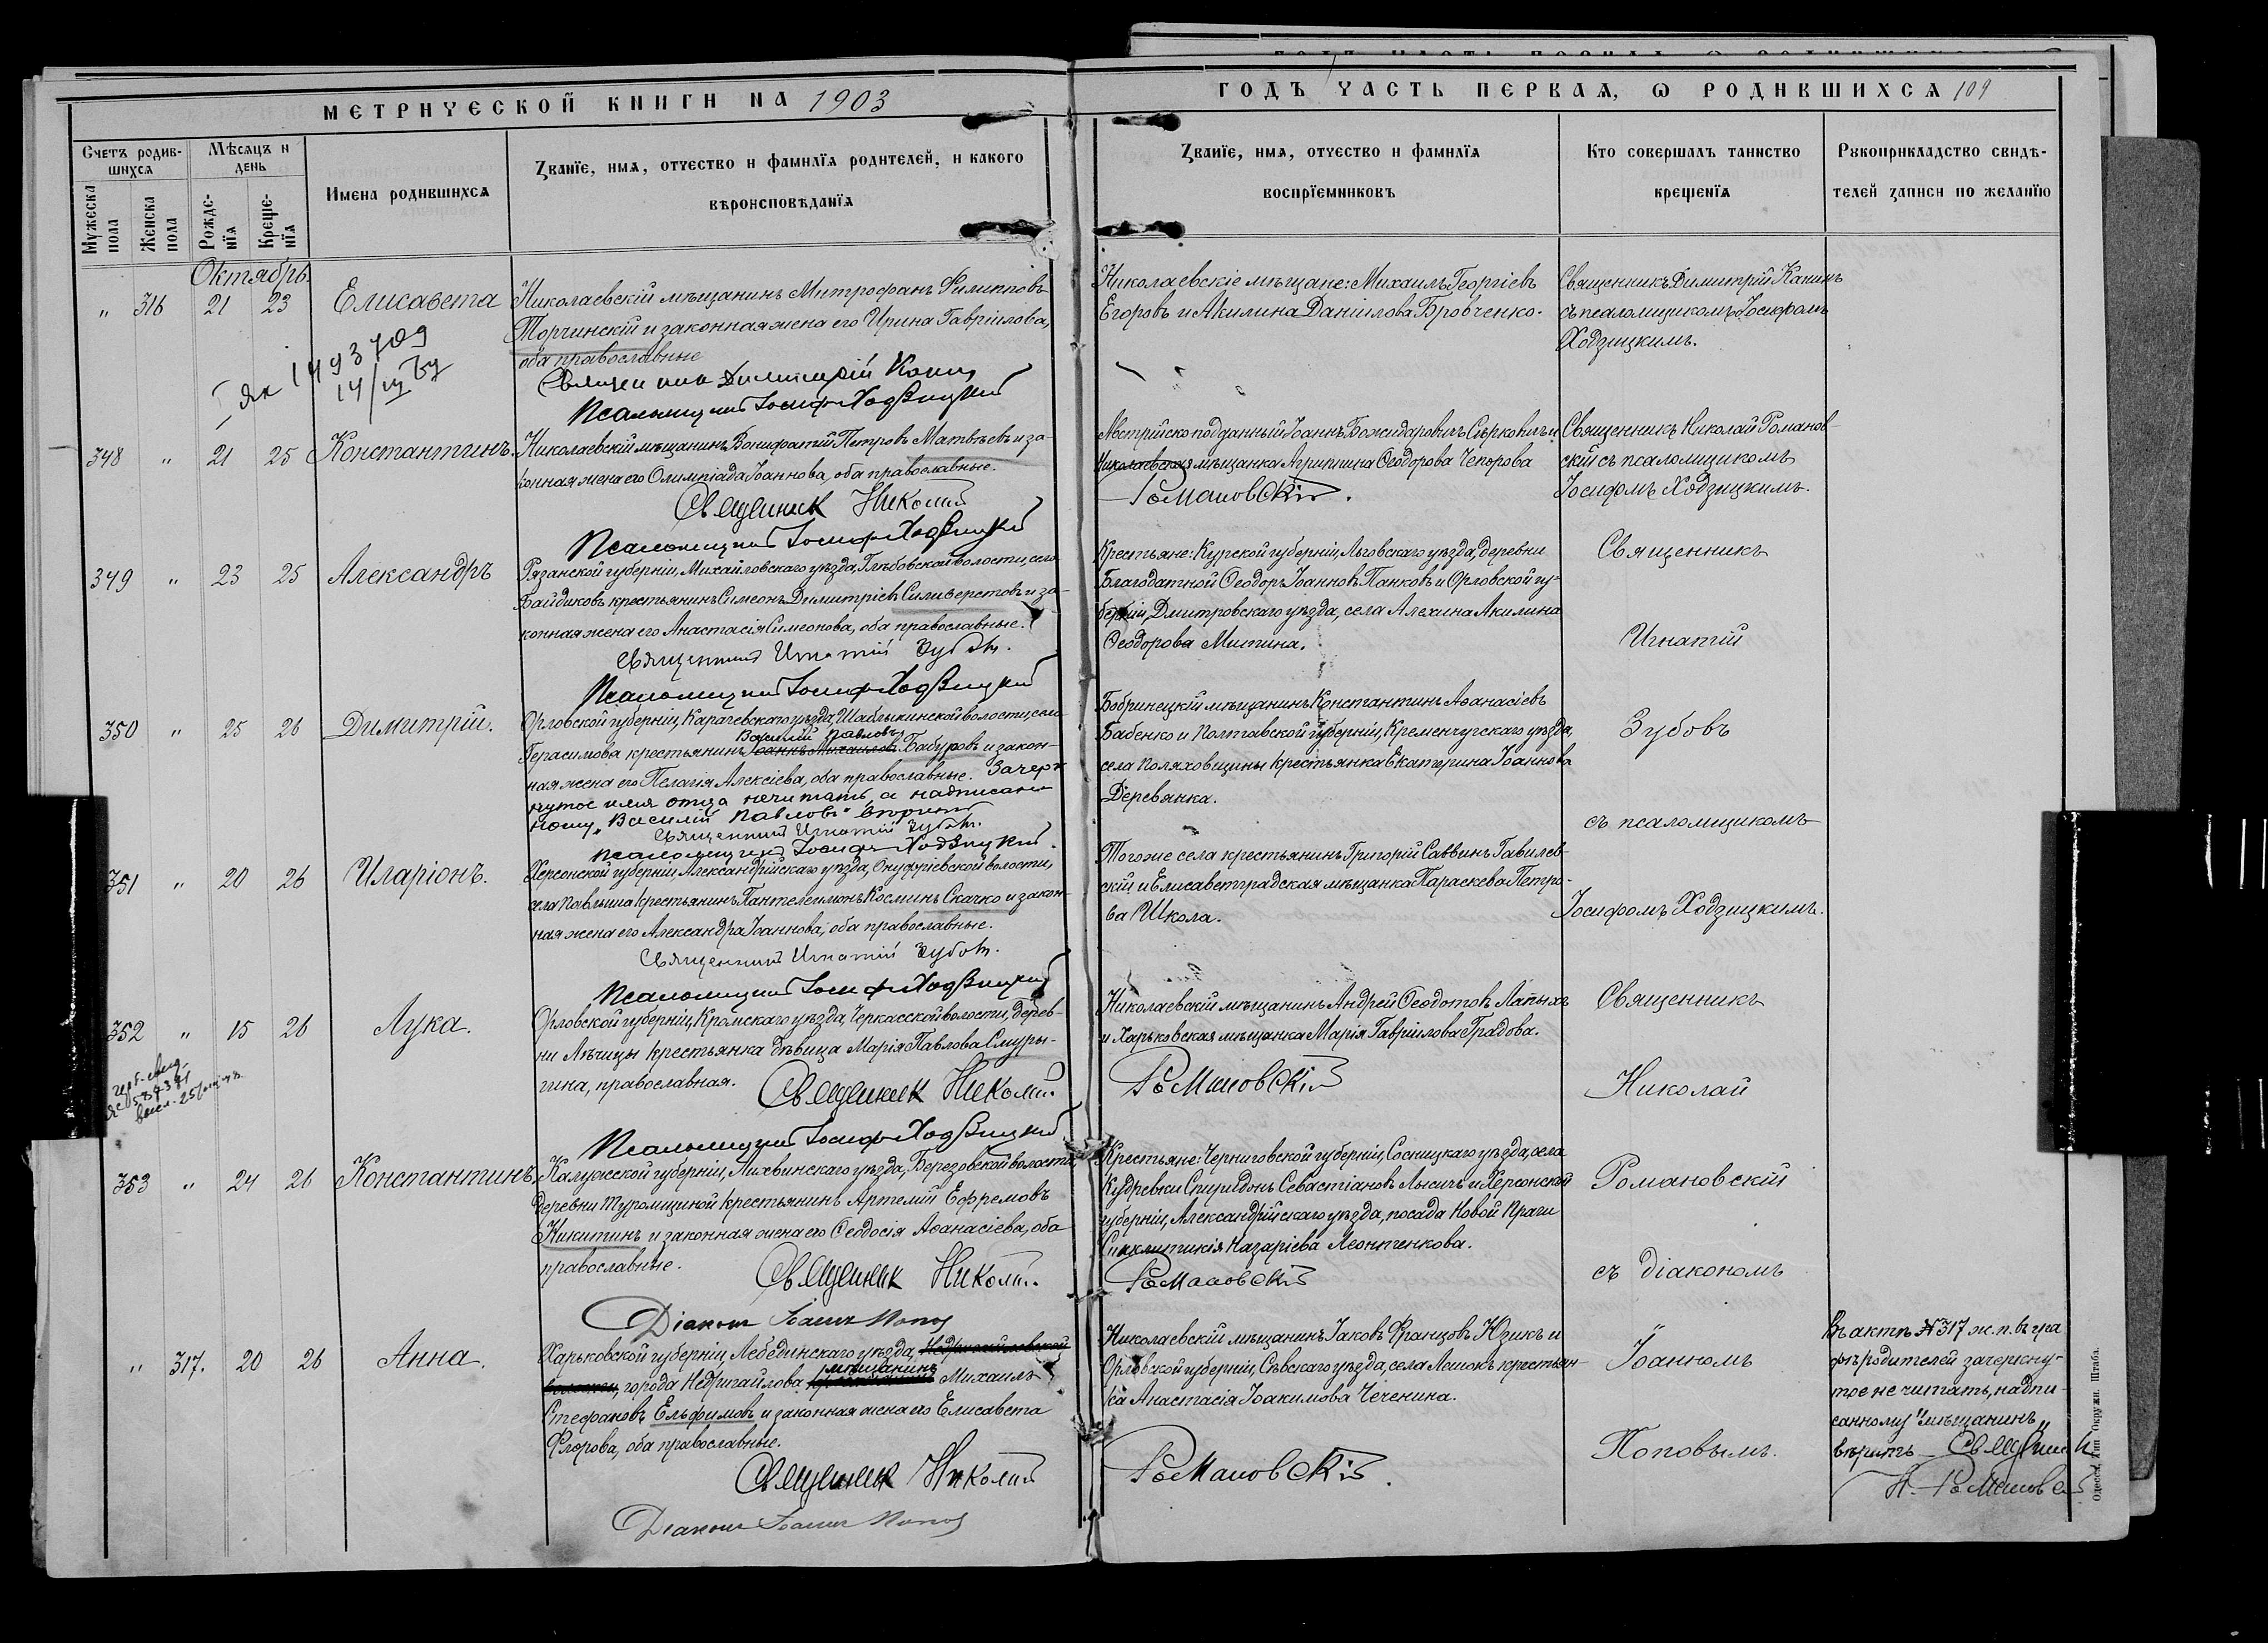 МЕТРИЧЕСКОЙ КНИГИ НА 1903
Счетъ родив-
шихся
Мѣсяцъ и
день
Мужеска
пола
Женска
пола
Рожде-
нїя
Креще-
нїя
Имена родившихся
Званїе, имя, отчество и фамилїя родителей, и какого
вѣроисповѣданїя
Октябрь
" 316 21 23 Елисавета
Николаевскій мѣщанинъ Митрофанъ Филипповъ
Торчинскій и законная жена его Ирина Гавріилова,
оба православные
Священникъ Димитрій Канинъ
Псаломщикъ Іосифъ Ходзицкій
348 " 21 25 Константинъ.
Николаевскій мѣщанинъ Вонифатій Петровъ Матвѣевъ и за-
конная жена его Олимпіада Іоаннова, оба православные.
Священникъ Николай
Псаломщикъ Іосифъ Ходзицкій
349 " 23 25 Александръ
Рязанской губерніи, Михайловскаго уѣзда, Глѣбовской волости, села
Байдиковъ крестьянинъ Симеонъ Димитріевъ Силиверстовъ и за-
конная жена его Анастасія Симеонова, оба православные.
Священникъ Игнатій Зубовъ.
Псаломщикъ Іосифъ Ходзицкій
350 " 25 26 Димитрій.
Орловской губерніи, Карачевскаго уѣзда, Шаблыкинской волости, села
Василій Павловъ
Герасимова крестьянинъ Іоаннъ Михаиловъ Бабуровъ и закон-
ная жена его Пелагія Алексіева, оба православные. Зачерк
нутое имя отца нечитать, а надписан
ному "Василій Павловъ" вѣрить
Священникъ Игнатій Зубовъ.
Псаломщикъ Іосифъ Ходзицкій.
351 " 20 26 Иларіонъ.
Херсонской губерніи, Александрійскаго уѣзда, Онуфріевской волости,
села Павлыша крестьянинъ Пантелеимонъ Косминъ Скачко и закон-
ная жена его Александра Іоаннова, оба православные.
Священникъ Игнатій Зубовъ.
Псаломщикъ Іосифъ Ходзицкій
352 " 15 26 Лука.
Орловской губерніи, Кромскаго уѣзда, Черкасской волости, дерев-
ни Лѣчицы крестьянка дѣвица Марія Павлова Смуры-
гина, православная.
Священникъ Николай
Псаломщикъ Іосифъ Ходзицкій
353 " 24 26 Константинъ.
Калужской губерніи, Лихвинскаго уѣзда, Березовской волости,
деревни Туромщиной крестьянинъ Артемій Ефремовъ
Никитинъ и законная жена его Ѳеодосія Аѳанасіева, оба
православные.
Священникъ Николай
Діаконъ Іоаннъ Поповъ
" 317. 20 26 Анна.
Харьковской губерніи, Лебединскаго уѣзда, Недригайловской
мѣщанинъ
волости, города Недригайлова Михаилъ
Стефановъ Ельфимовъ и законная жена его Елисавета
Флорова, оба православные.
Священникъ Николай
Діаконъ Іоаннъ Поповъ
ГОДЪ ЧАСТЬ ПЕРВАЯ, Ѡ РОДИВШИХСЯ 109
Званїе, имя, отчество и фамилїя
воспрїемниковъ
Кто совершалъ таинство
крещенїя
Рукоприкладство свидѣ-
телей записи по желанїю
Николаевскіе мѣщане: Михаилъ Георгіевъ
Егоровъ и Акилина Даніилова Бровченко.
Священникъ Димитрій Канинъ
съ псаломщикомъ Іосифомъ
Ходзицкимъ.
Австрійско подданный Іоаннъ Божидаровичъ Сѣрковичъ и
Николаевская мѣщанка Агриппина Ѳеодорова Чепорова
Романовскій.
Священникъ Николай Романов-
скій съ псаломщикомъ
Іосифомъ Ходзицкимъ.
Крестьяне: Курской губерніи, Льговскаго уѣзда, деревни
Благодатной Ѳеодоръ Іоанновъ Панковъ и Орловской гу-
берніи, Дмитровскаго уѣзда, села Алехина Акилина
Ѳеодорова Митина.
Священникъ
Игнатій
Бобринецкій мѣщанинъ Константинъ Аѳанасіевъ
Бабенко и Полтавской губерніи, Кременчугскаго уѣзда,
села Поляховщины крестьянка Екатерина Іоаннова
Деревянка.
Зубовъ
съ псаломщикомъ
Того же села крестьянинъ Григорій Саввинъ Гавилев-
скій и Елисаветградская мѣщанка Параскева Петро-
ва Школа.
Іосифомъ Ходзицкимъ.
Николаевскій мѣщанинъ Андрей Ѳеодотовъ Лапыхъ
и Харьковская мѣщанка Марія Гавріилова Градова.
Романовскій
Священникъ
Николай
Крестьяне: Черниговской губерніи, Сосницкаго уѣзда, села
Кудревки Спиридонъ Севастіановъ Лысичъ и Херсонской
губерніи, Александрійскаго уѣзда, посада Новой Праги
Синклитикія Назаріева Леонтенкова.
Романовскій
Романовскій
съ діакономъ
Николаевскій мѣщанинъ Іаковъ Францовъ Юзикъ и
Орловской губерніи, Сѣвскаго уѣзда, села Лешокъ крестьян-
ка Анастасія Іоакимова Чеченина.
Романовскій.
Іоанномъ
Поповымъ.
Въ актѣ №317 ж.п. въ гра
фѣ родителей зачеркну-
тое не читать, надпи-
санному "мѣщанинъ"
вѣрить Священникъ
Н. Романовскій
Одесса, Тип. Окружн. Штаба.